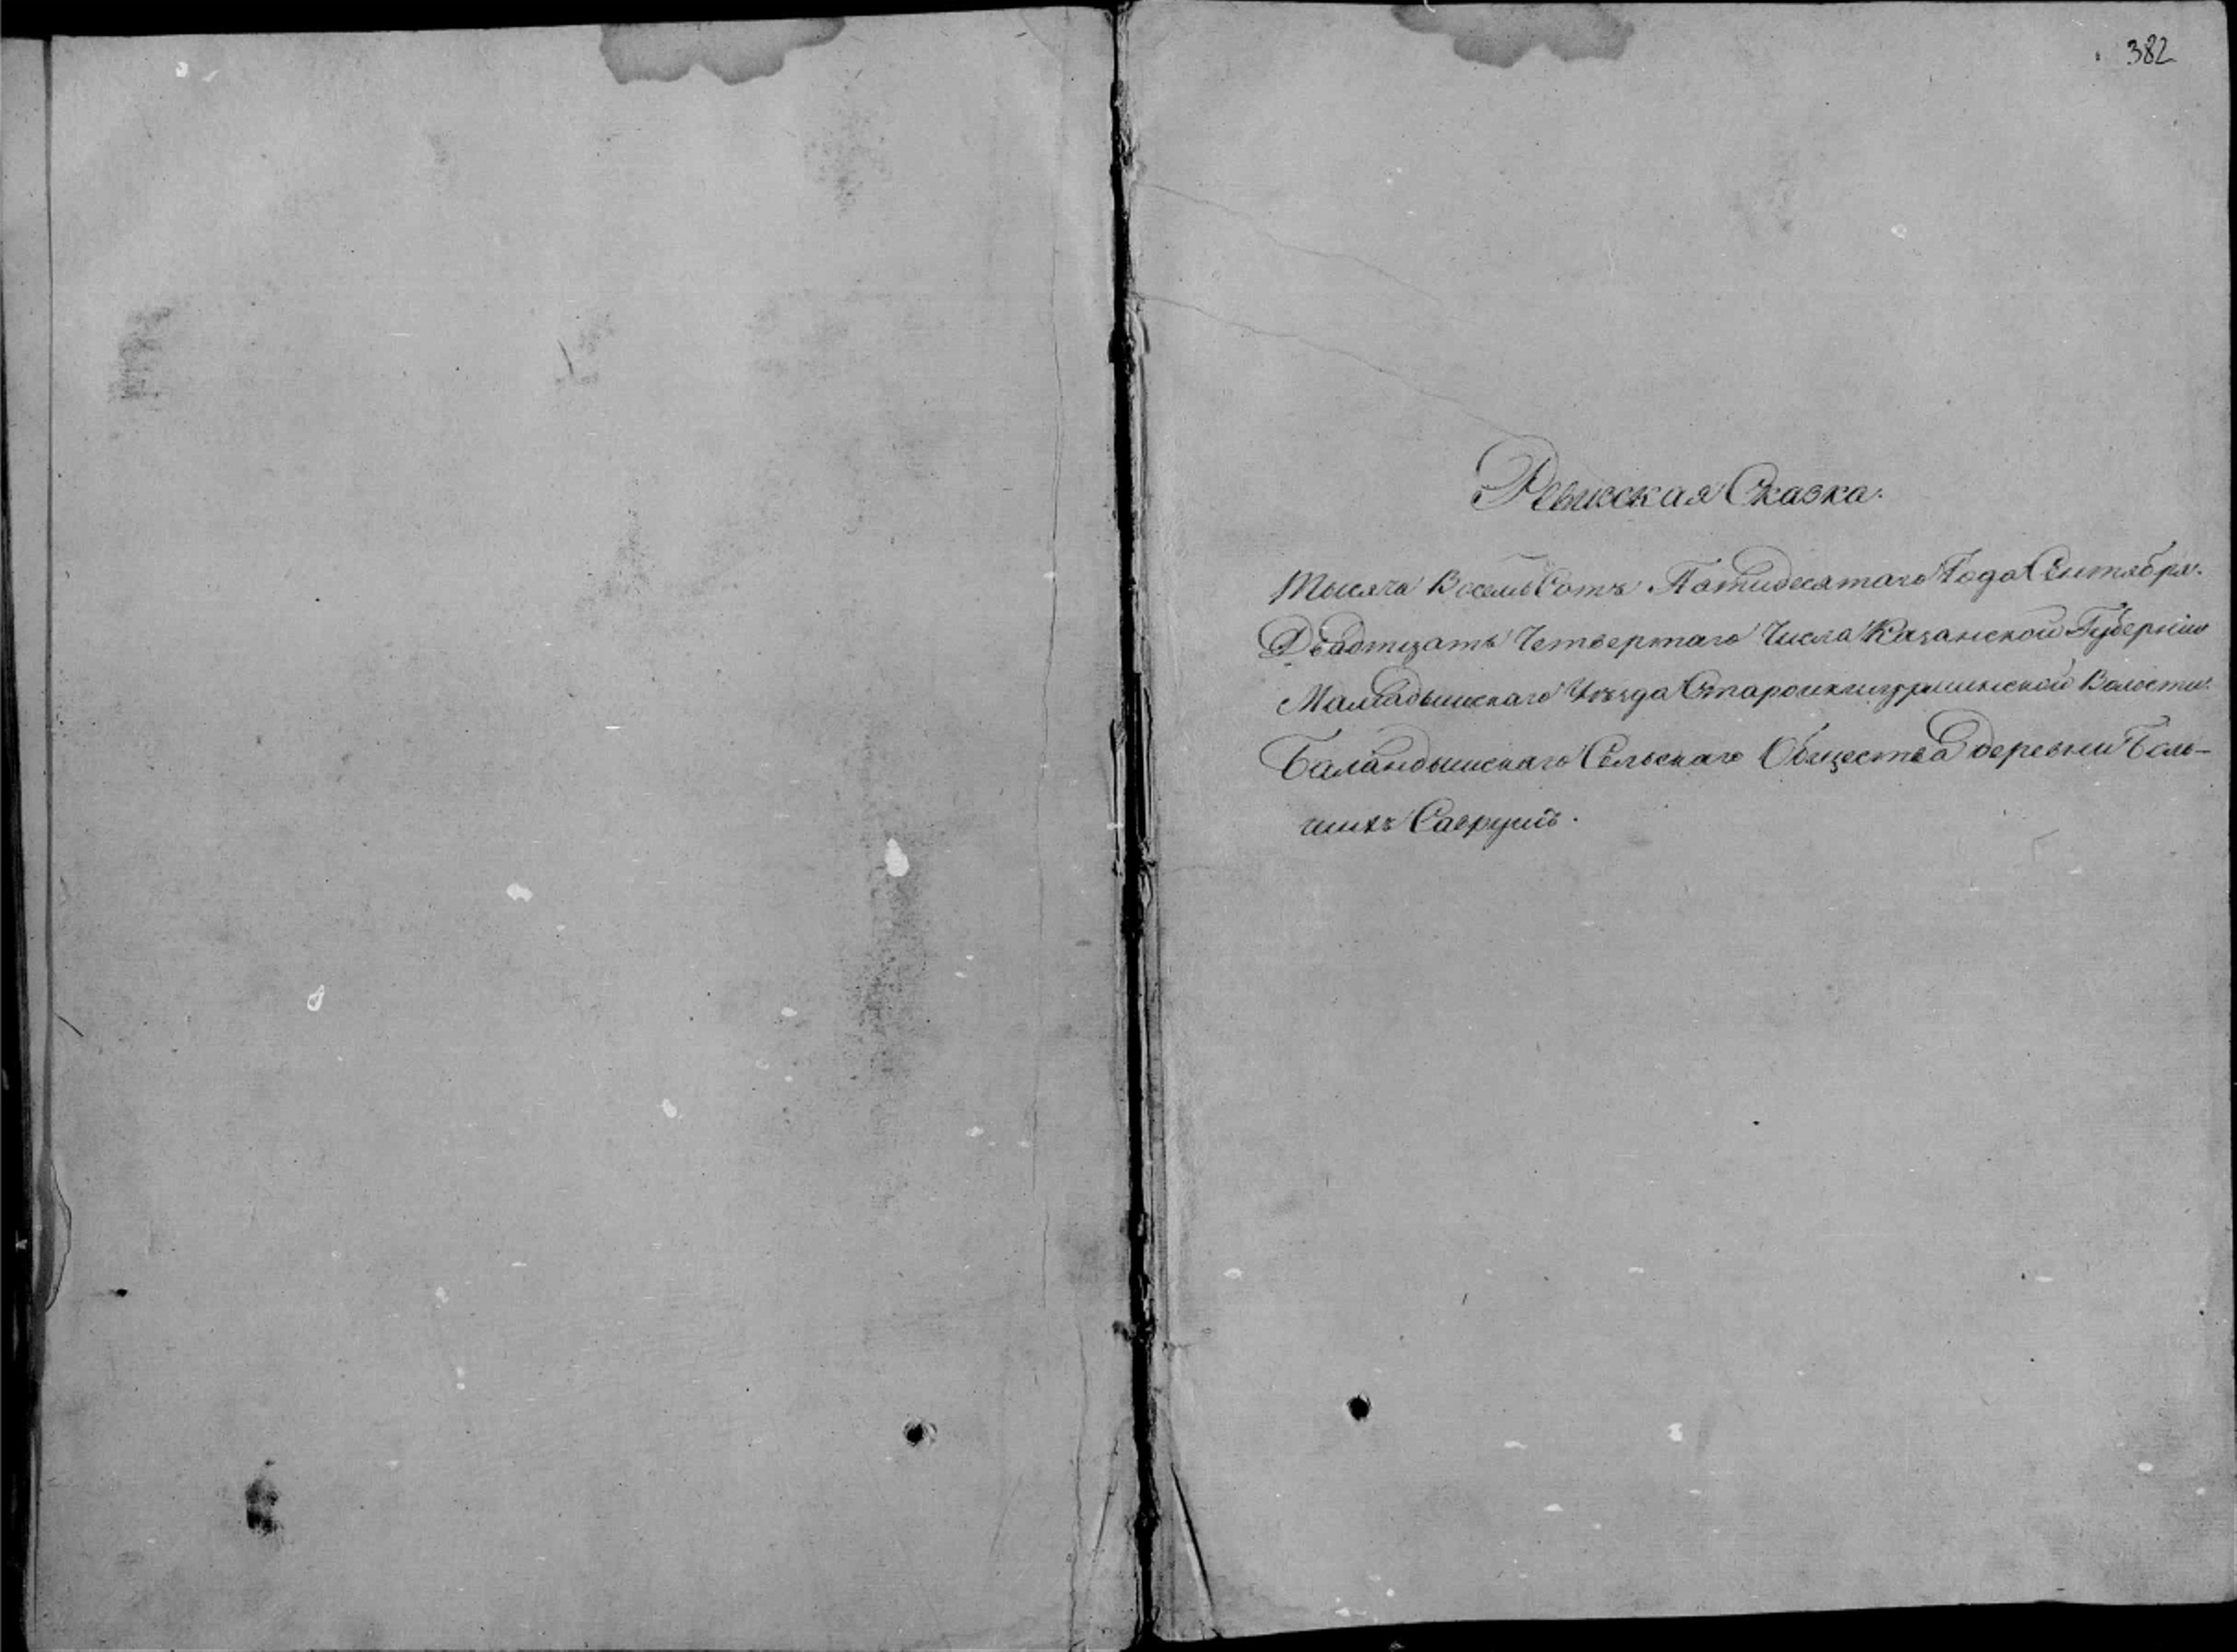 382
Ревизская Сказка.
Тысяча Восемь Сотъ Пятидесятаго Года Сентября.
Двадтцать Четвертаго Числа Казанской Губерніи
Мамадышскаго Уѣзда Староикшурминской Волости.
Баландышскаго Сельскаго Общества деревни Боль-
шихъ Саврушъ.